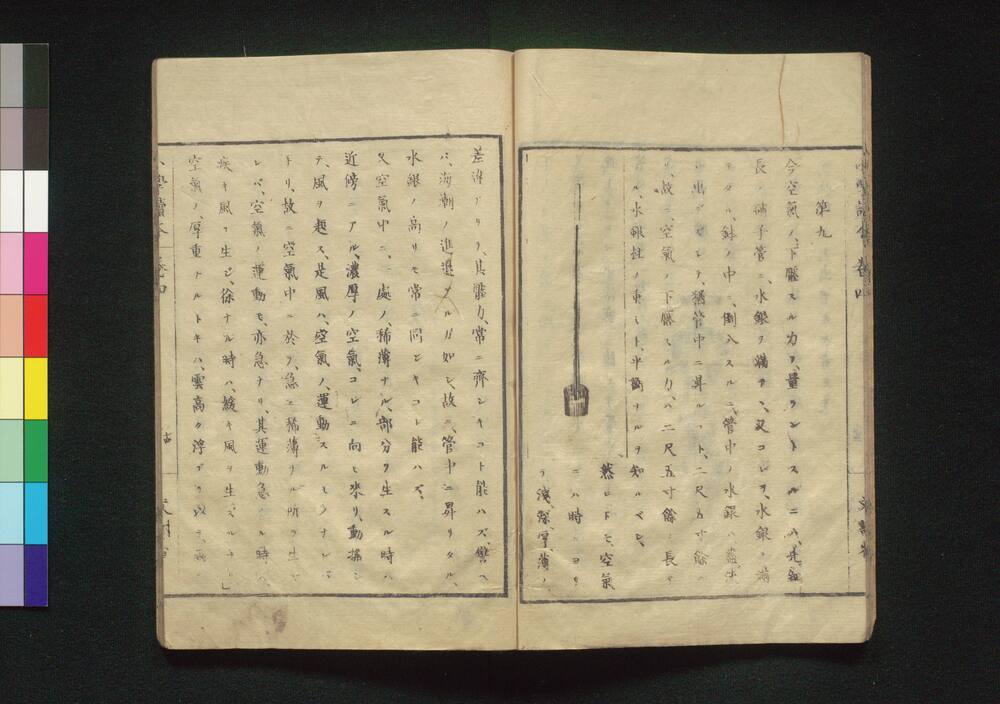 第九
今空氣ノ、下壓スル力ヲ、量ラントスルニハ、其細
長ノ硝子管ニ、水銀ヲ滿テ、又コレヲ、水銀ノ滿
タル、鉢ノ中ニ、倒入スルニ、管中ノ水銀ハ、盡ク
出デズシテ、猶管中ニ昇ルコト、二尺五寸餘
故ニ、空氣ノ下壓スル力ハ、二尺五寸餘ノ長サ
ル、水銀柱ノ重ミト、平均ナルヲ知ルベシ、
然レドモ、空氣
ニハ、時ニヨリ
テ淺深、厚薄ノ
差異アリテ、其壓力、常ニ齊シキコト能ハズ、譬ヘ
バ、海潮ノ進退アルガ如シ、故ニ、管中ニ昇リタル、
水銀ノ高サモ、常ニ同ジキコト能ハズ、
又空氣中ニ、一處ノ、稀薄ナル、部分ヲ生スル時ハ
近傍ニアル、濃厚ノ空氣、コレニ向ヒ來リ、動搖シ
テ、風ヲ起ス、是風ハ、空氣ノ、運動スルモノナレバ
ナリ、故ニ空氣中ニ於テ、急ニ稀薄ナル所ヲ生ズ
レバ、空氣ノ運動モ、亦急ナリ、其運動急ナル時ハ
疾キ風ヲ生ジ、徐ナル時ハ、緩キ風ヲ生ズルナリ」
空氣ノ、厚重ナルトキハ、雲高ク浮ブヲ以テ、雨
小學讀本 卷四